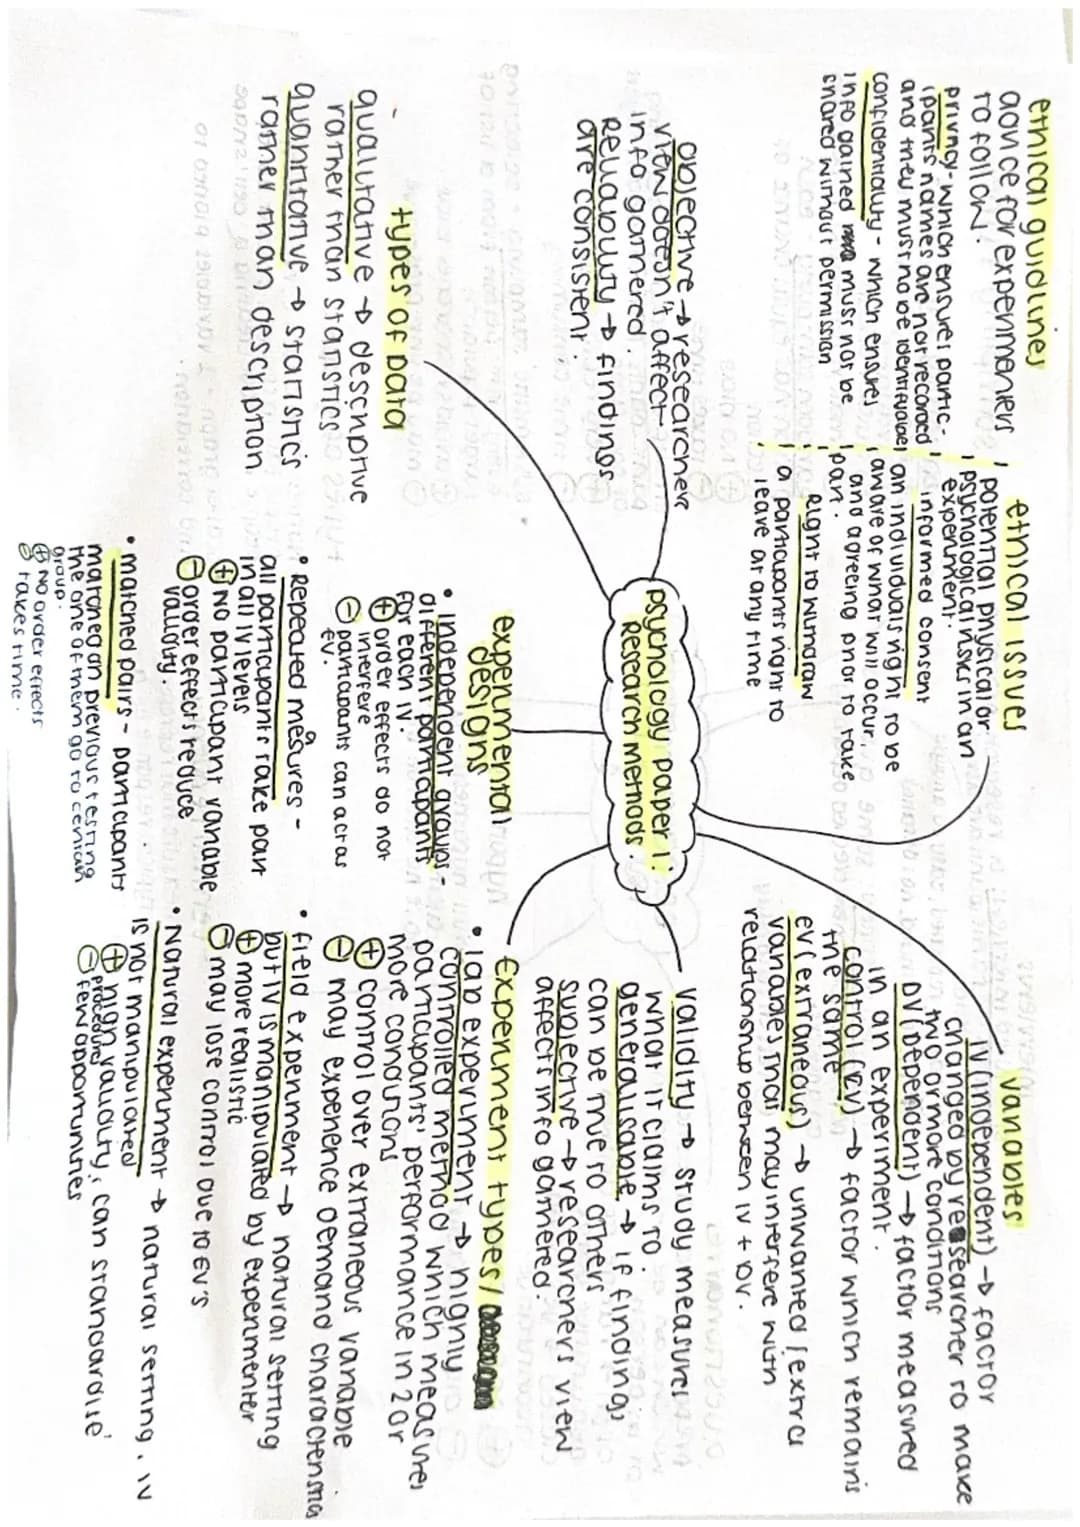 psychology paper 1:
Research methods.
ethical guidlines
advice for experimenters
to follow.
privacy - which ensures partic-
ipants names are not recorded
and they must no be identifyable
confidentiality - which ensures
info gained must not be
shared without permission
ethical issues
potential physical or
psychological risks in an
experiment:
informed consent
an individuals right to be
aware of what will occur,
and agreeing prior to take
part.
Right to withdraw
a participants right to
leave at any time
Variables
IV (independent) → factor
changed by researcher to make
two or more conditions
DV (dependent) → factor measured
in an experiment.
control (CV) → factor which remains
the same
EV (extraneous) → unwanted / extra
variables that may interfere with
relationship between IV + DV.
objective → researchers
view doesn't affect
info gathered.
Reliability → findings
are consistent.
validity → study measures
what it claims to.
generalisable → if findings
can be true to others
subjective → researchers view
affects info gathered.
types of Data
- qualitative → descriptive
rather than statistics
quantitative → statistics
rather than description
experimental
designs
• Independent groups -
different participants
for each IV.
⊕ order effects do not
interfere
⊖ participants can act as
EV.
• Repeated mesures -
all participants take part
in all IV levels
⊕ NO participant variable
⊖ order effects reduce
validity.
• matched pairs - participants
matched on previous testing
the one of them go to certian
group.
⊕ NO order effects
⊖ takes time.
Experiment types /
• lab experiment → highly
controlled method which measures
participants' performance in 2 or
more conditions
⊕ control over extraneous variable
⊖ may experience demand characteristics
• field experiment → natural setting
but IV is manipulated by experimenter
⊕ more realistic
⊖ may lose control due to EV's
• Natural experiment → natural setting. IV
is not manipulated
⊕ high validity, can standardise
procedure
⊖ few opportunities